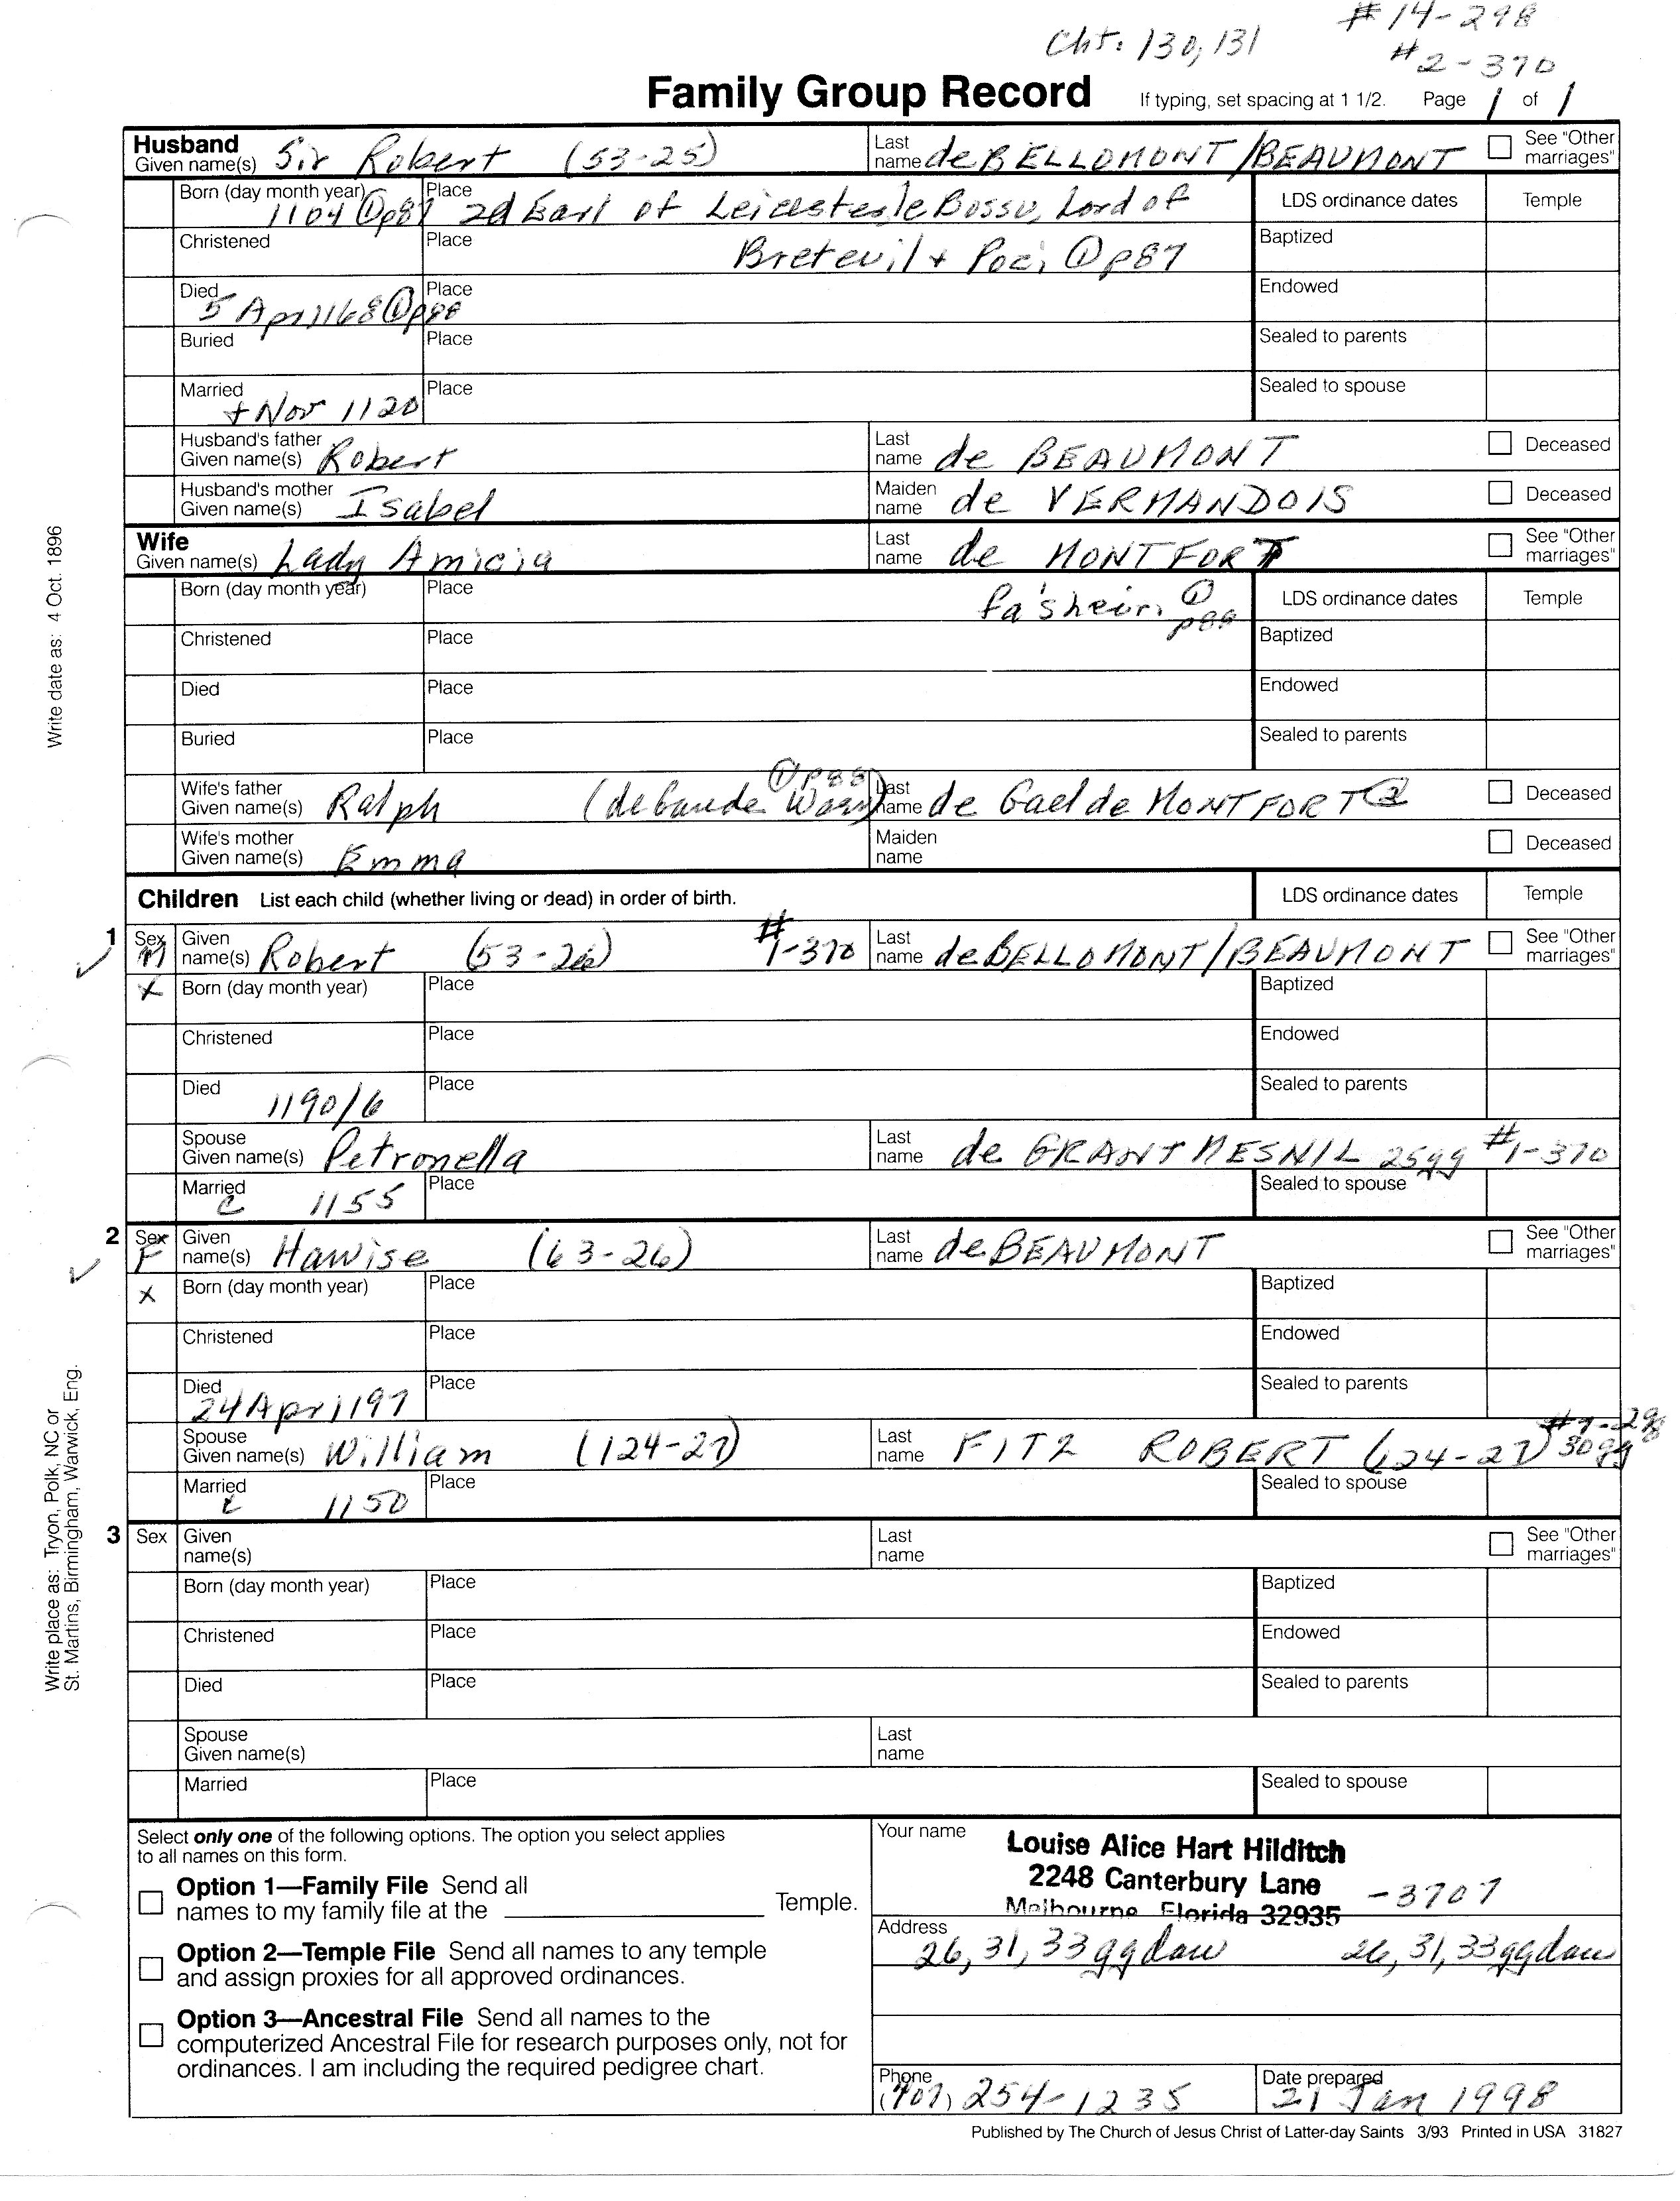 #14-298
Cht: 130, 131
#2-370
Family Group Record If typing, set spacing at 1 1/2. Page 1 of 1
Husband
Given name(s) Sir Robert (53-25) Last name de BELLOMONT/BEAUMONT See "Other marriages"
Born (day month year) 1104 ① p87 Place 2d Earl of Leicester le Bossu, Lord of LDS ordinance dates Temple
Christened Place Breteuil + Poci ① p87 Baptized
Died 5 Apr 1168 ① p88 Place Endowed
Buried Place Sealed to parents
Married + Nov 1120 Place Sealed to spouse
Husband's father Given name(s) Robert Last name de BEAUMONT Deceased
Husband's mother Given name(s) Isabel Maiden name de VERMANDOIS Deceased
Wife
Given name(s) Lady Amicia Last name de MONTFORT See "Other marriages"
Born (day month year) Place fa's heir, ① p88 LDS ordinance dates Temple
Christened Place Baptized
Died Place Endowed
Buried Place Sealed to parents
① p88
Wife's father Given name(s) Ralph Last name de Gael de MONTFORT ② Deceased
Wife's mother Given name(s) Emma Maiden name Deceased
Children List each child (whether living or dead) in order of birth. LDS ordinance dates Temple
1 Sex M Given name(s) Robert (53-26) #1-370 Last name de BELLOMONT/BEAUMONT See "Other marriages"
X Born (day month year) Place Baptized
Christened Place Endowed
Died 1190/6 Place Sealed to parents
Spouse Given name(s) Petronella Last name de GRANTMESNIL 25gg #1-370
Married c 1155 Place Sealed to spouse
2 Sex F Given name(s) Hawise (63-26) Last name de BEAUMONT See "Other marriages"
X Born (day month year) Place Baptized
Christened Place Endowed
Died 24 Apr 1197 Place Sealed to parents
Spouse Given name(s) William (124-27) Last name FITZ ROBERT (124-27) 30gg #7-298
Married c 1150 Place Sealed to spouse
3 Sex Given name(s) Last name See "Other marriages"
Born (day month year) Place Baptized
Christened Place Endowed
Died Place Sealed to parents
Spouse Given name(s) Last name
Married Place Sealed to spouse
Select only one of the following options. The option you select applies
to all names on this form.
Option 1—Family File Send all
names to my family file at the Temple.
Option 2—Temple File Send all names to any temple
and assign proxies for all approved ordinances.
Option 3—Ancestral File Send all names to the
computerized Ancestral File for research purposes only, not for
ordinances. I am including the required pedigree chart.
Your name Louise Alice Hart Hilditch
2248 Canterbury Lane
Melbourne Florida 32935 -3707
Address
26, 31, 33 ggdau 26, 31, 33 ggdau
Phone (407) 254-1235 Date prepared 21 Jan 1998
Published by The Church of Jesus Christ of Latter-day Saints 3/93 Printed in USA 31827
Write date as: 4 Oct. 1896
Write place as: Tryon, Polk, NC or
St. Martins, Birmingham, Warwick, Eng.